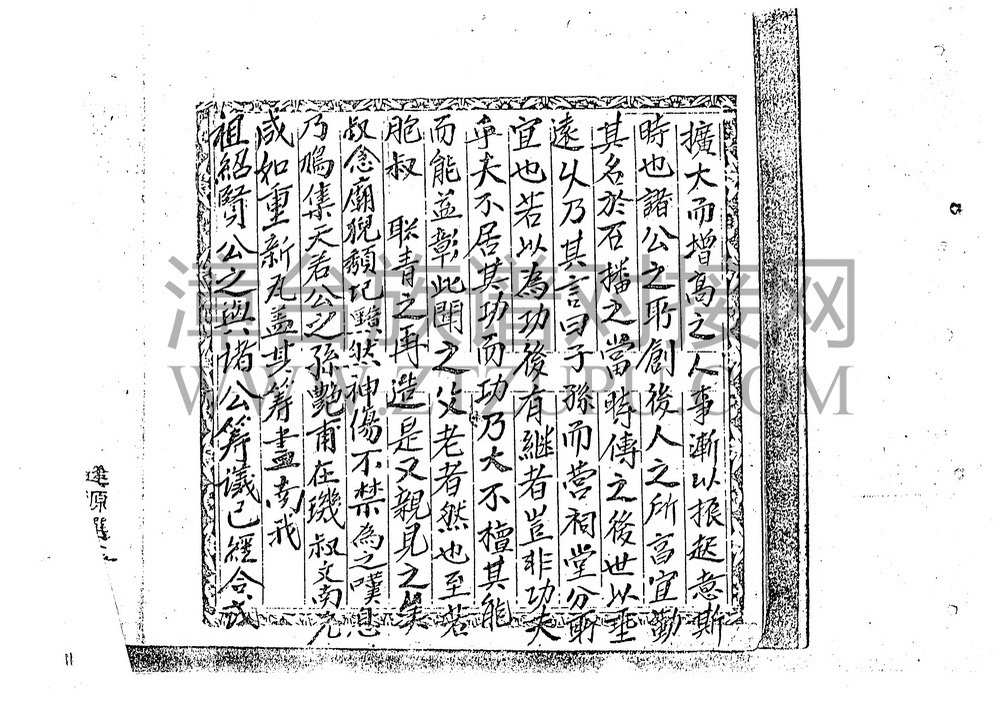 擴大而增高之人事漸以振起意斯
時也諸公之所創後人之所富宜勒
其名於石播之當時傳之後世以垂
遠久乃其言曰子孫而營祠堂分所
宜也若以為功後有継者豈非功夫
乎夫不居其功而功乃大不檀其能
而能益彰此聞之父老者然也至若
胞叔 联青之再造是又親見之漢
叔念廟貌頽圮黯然神傷不禁為之嘆息
乃鳩集天若公之孫艷甫在璣叔文南兄
咸如重新凡盖其筹畫
祖紹賢公之與諸公筹議已經合或
津台族谱对接网
WWW.ZTZUPU.COM